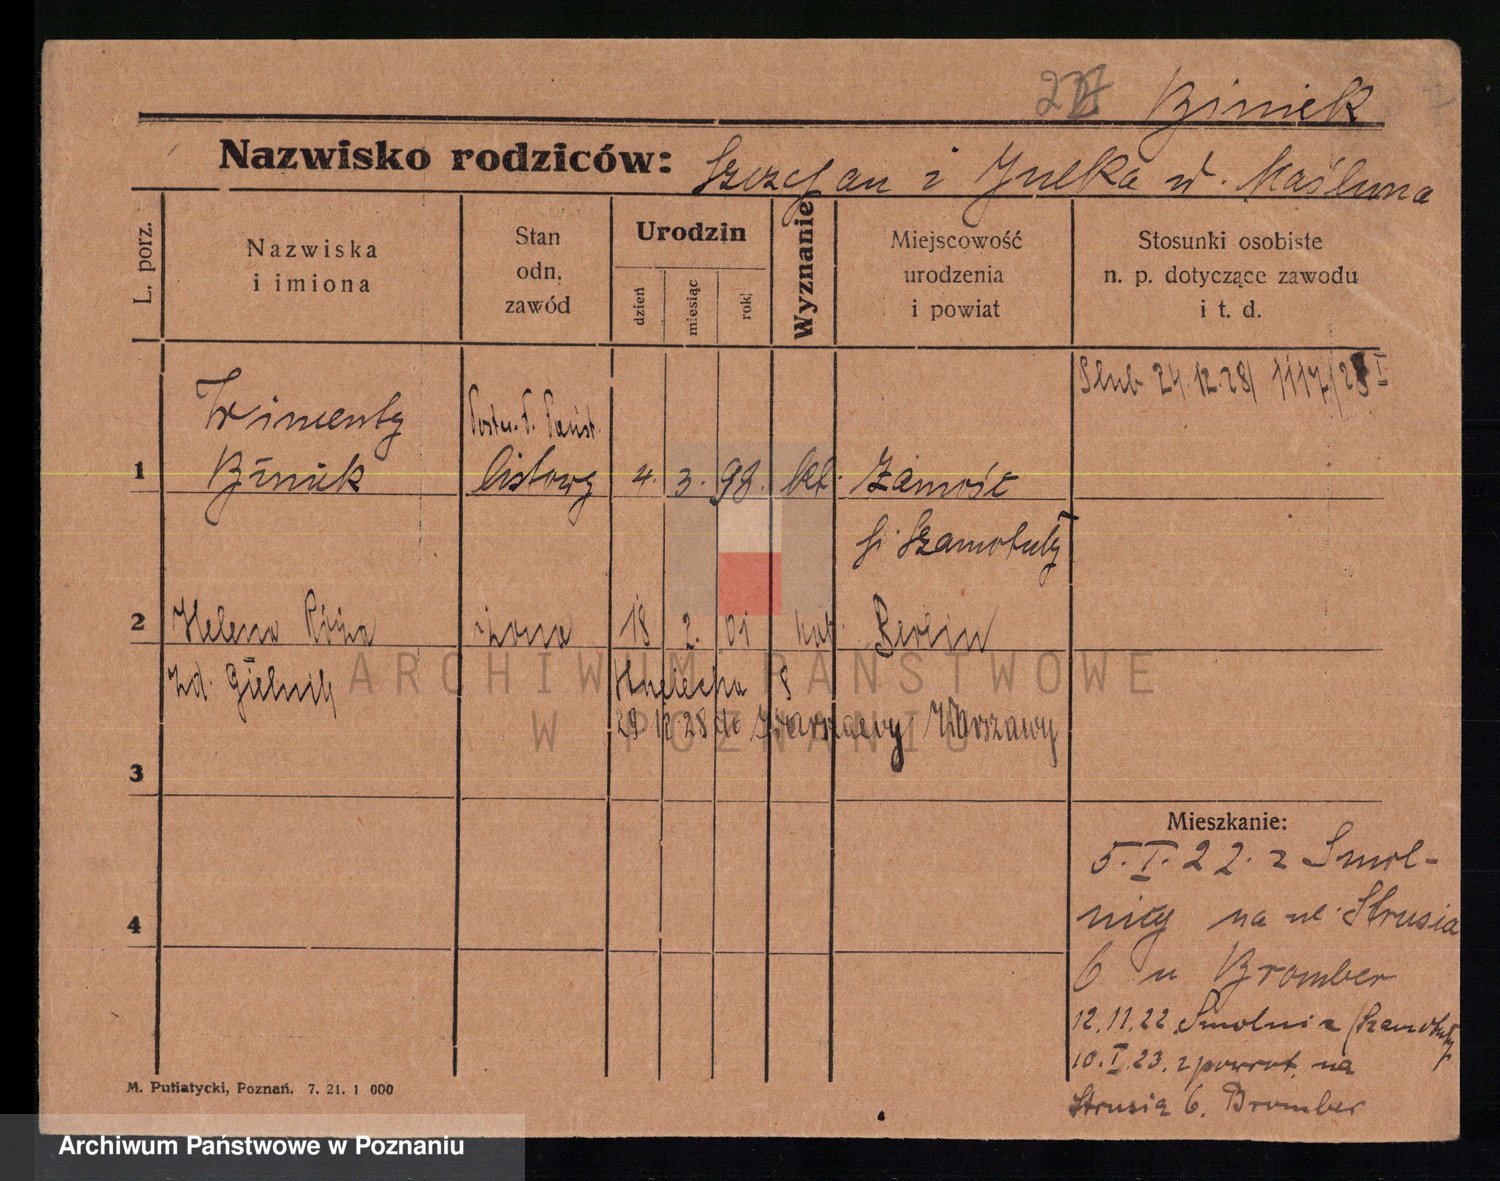 Biniek
Nazwisko rodziców: Szczepan i Julka ur. Maślona
L. porz.
Nazwiska
i imiona
Stan
odn.
zawód
Urodzin
dzień
miesiąc
rok
Wyznanie
Miejscowość
urodzenia
i powiat
Stosunki osobiste
n. p. dotyczące zawodu
i t. d.
Ślub 24.12.28
Wincenty
1 Biniek listowy 4. 3. 98. kt. Zamość
p. Szamotuły
2 Helena Róża żona 18 2. 01 kat. Berlin
zd. Gielnik
29 12.28 do Warszawy Warszawy
3
Mieszkanie:
5.I.22. z Smol-
nicy na ul. Strusia
6 u Bromber
4
12.11.22 Smolnica (Szamotuły
10.I.23. z powrot. na
Strusia 6. Bromber
M. Putiatycki, Poznań. 7. 21. 1 000
ARCHIWUM PAŃSTWOWE
W POZNANIU
Archiwum Państwowe w Poznaniu